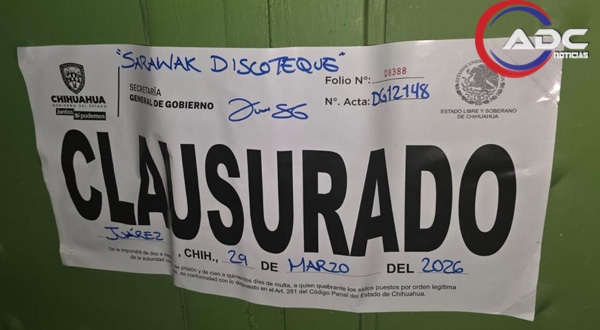 ADC
NOTICIAS
"SARAWAK DISCOTEQUE"
CHIHUAHUA
GOBIERNO DEL ESTADO
Juntos Sí podemos
SECRETARÍA
GENERAL DE GOBIERNO
Folio N°: 08388
N°. Acta: DG12148
ESTADO LIBRE Y SOBERANO
DE CHIHUAHUA
CLAUSURADO
JUÁREZ, CHIH., 29 DE MARZO DEL 2026
De la impondrá de dos a
de la autoridad
prisión y de cien a quinientos días de multa, a quien quebrante los sellos puestos por orden legítima
de conformidad con lo dispuesto en el Art. 261 del Código Penal del Estado de Chihuahua.